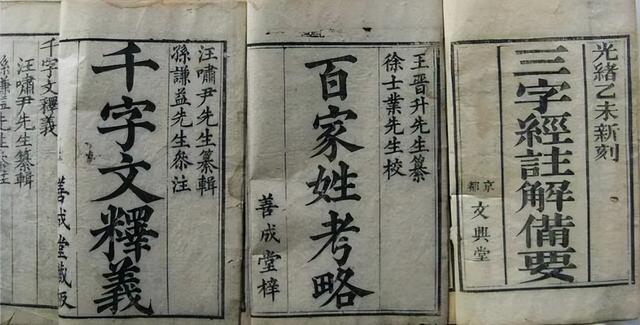 光緒乙未新刻
三字經註解備要
京都
文興堂
王晋升先生纂
徐士業先生校
百家姓考略
善成堂梓
汪嘯尹先生纂輯
孫謙益先生叅注
千字文釋義
善成堂藏板
千字文釋義
汪嘯尹先生纂輯
孫謙益先生叅注